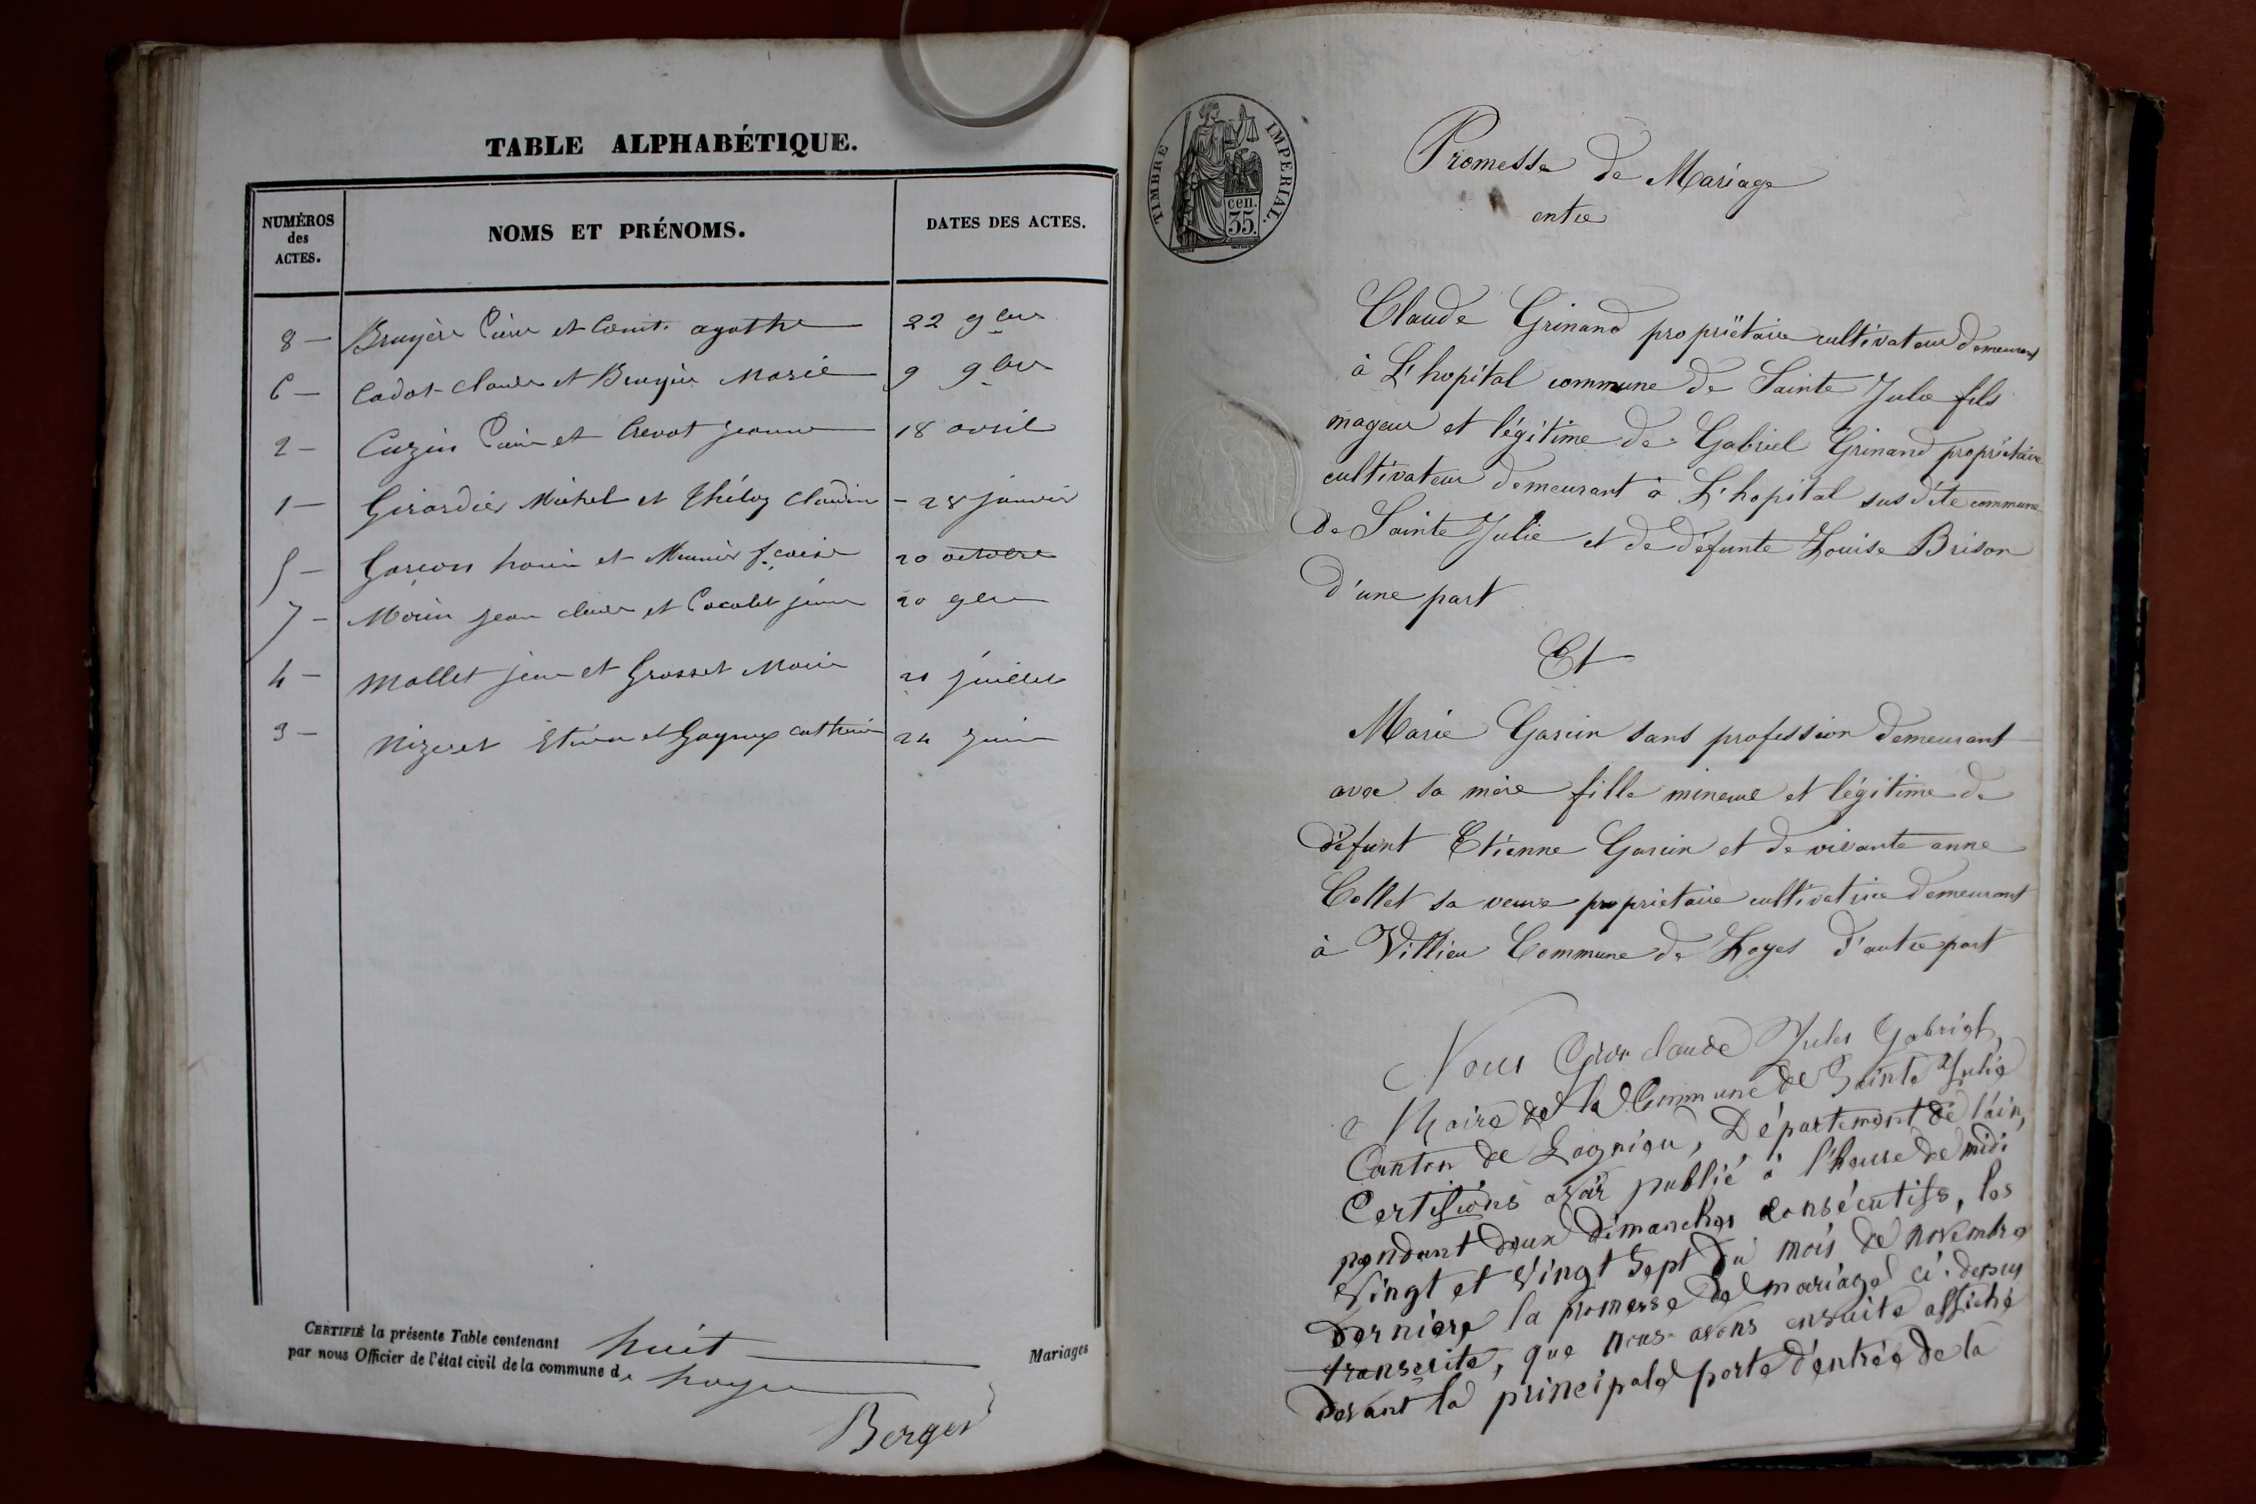 TABLE ALPHABÉTIQUE.
NUMÉROS
des
ACTES.
NOMS ET PRÉNOMS.
DATES DES ACTES.
8 — Bruyère et agathe 22 9bre
6 — Cadot Claude et Bruyère Marie 9 9bre
2 — Cuzin et Crevat jeanne 18 avril
1 — Girardier Michel et Théloz Claudine — 28 janvier
5 — et Meunier fçoise 20 octobre
7 — Morin jean claude et 20 9bre
4 — Mollet jean et Grosset Marie 21 juillet
3 — Nizeret Etienne et Catherine 24 juin
CERTIFIÉ la présente Table contenant huit Mariages
par nous Officier de l'état civil de la commune de Loyes
Berger
TIMBRE IMPERIAL.
35 cen.
Promesse de Mariage
entre
Claude Grinand propriétaire cultivateur demeurant
à L'hopital commune de Sainte Julie fils
mageur et légitime de Gabriel Grinand propriétaire
cultivateur demeurant à L'hopital susdite commune
de Sainte Julie et de défunte Louise Brison
d'une part
Et
Marie Garcin sans profession demeurant
avec sa mère fille mineure et légitime de
défunt Etienne Garcin et de vivante anne
Collet sa veuve propriétaire cultivatrice demeurant
à Villieu Commune de Loyes d'autre part
Nous claude Jules Gabriel,
Maire de la Commune de Sainte Julie
Canton de Lagnieu, Département de l'ain,
Certifions avoir publié à l'heure de midi
pendant deux dimanches consécutifs, les
Vingt et Vingt sept du mois de novembre
dernière la promesse de mariage ci-dessus
transcrite, que nous avons ensuite affiché
devant la principale porte d'entrée de la